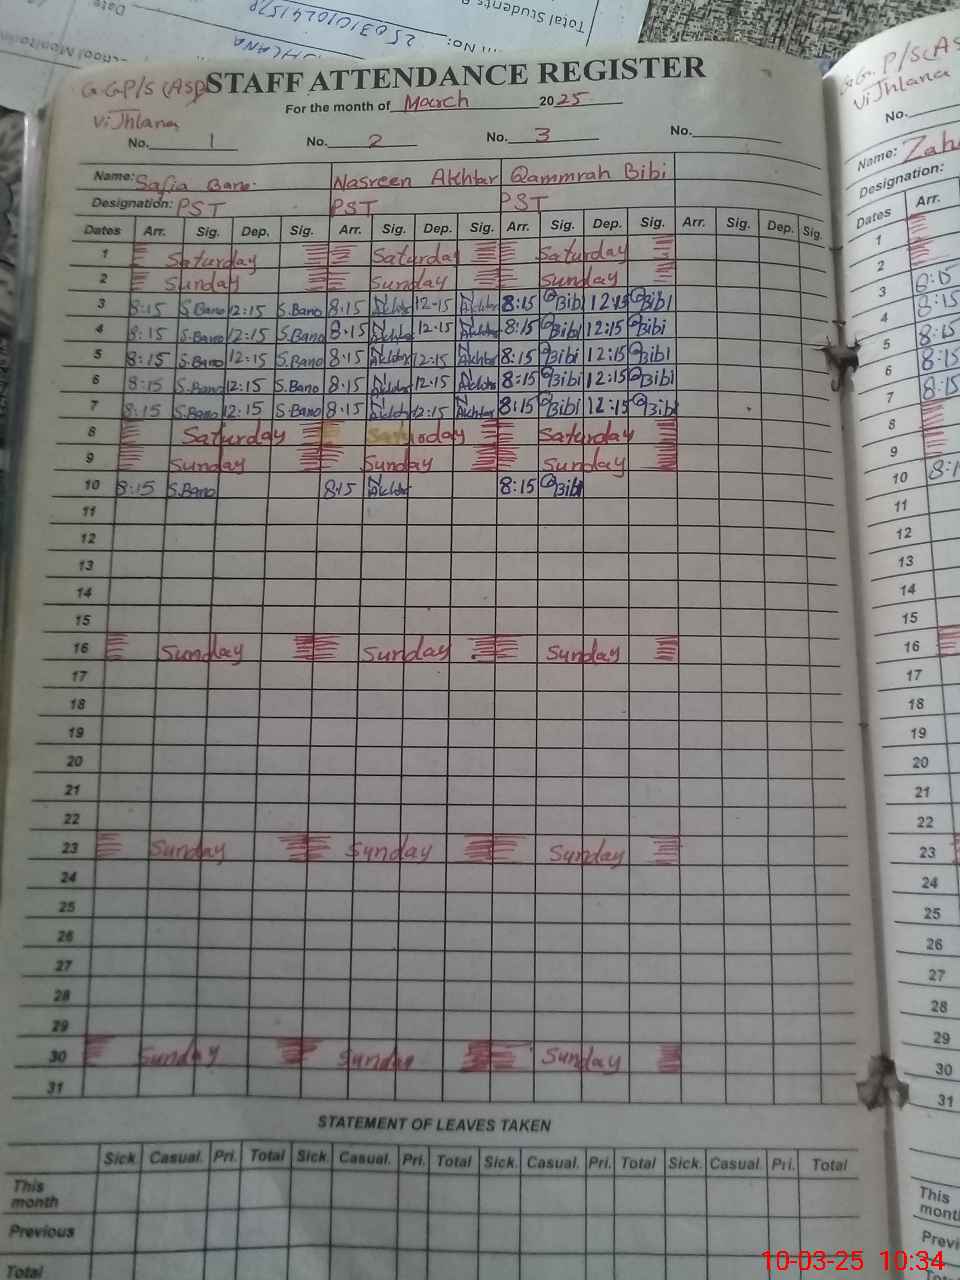 Total Students
No: 25031010241578
Date
School Monitoring
G.G.P/S (ASP)
STAFF ATTENDANCE REGISTER
For the month of March 2025
Vi Jhlana
No. 1 No. 2 No. 3 No.
Name: Safia Bano. Nasreen Akhtar Qammrah Bibi
Designation: PST PST PST
Dates Arr. Sig. Dep. Sig. Arr. Sig. Dep. Sig. Arr. Sig. Dep. Sig. Arr. Sig. Dep. Sig.
1 Saturday Saturday Saturday
2 Sunday Sunday Sunday
3 8:15 S.Bano 12:15 S.Bano 8:15 N Akhtar 12:15 N Akhtar 8:15 Q Bibi 12:15 Q Bibi
4 8:15 S.Bano 12:15 S.Bano 8:15 N Akhtar 12:15 N Akhtar 8:15 Q Bibi 12:15 Q Bibi
5 8:15 S.Bano 12:15 S.Bano 8:15 N Akhtar 12:15 N Akhtar 8:15 Q Bibi 12:15 Q Bibi
6 8:15 S.Bano 12:15 S.Bano 8:15 N Akhtar 12:15 N Akhtar 8:15 Q Bibi 12:15 Q Bibi
7 8:15 S.Bano 12:15 S.Bano 8:15 N Akhtar 12:15 N Akhtar 8:15 Q Bibi 12:15 Q Bibi
8 Saturday Saturday Saturday
9 Sunday Sunday Sunday
10 8:15 S.Bano 8:15 N Akhtar 8:15 Q Bibi
11
12
13
14
15
16 Sunday Sunday Sunday
17
18
19
20
21
22
23 Sunday Sunday Sunday
24
25
26
27
28
29
30 Sunday Sunday Sunday
31
STATEMENT OF LEAVES TAKEN
Sick. Casual. Pri. Total Sick. Casual. Pri. Total Sick. Casual. Pri. Total Sick. Casual. Pri. Total
This month
Previous
Total
G.G. P/S (AS
Vi Jhlana
No.
Name: Zah
Designation:
Dates Arr.
1
2
3 8:15
4 8:15
5 8:15
6 8:15
7 8:15
8
9
10 8:1
11
12
13
14
15
16
17
18
19
20
21
22
23
24
25
26
27
28
29
30
31
This
mont
Previ
10-03-25 10:34